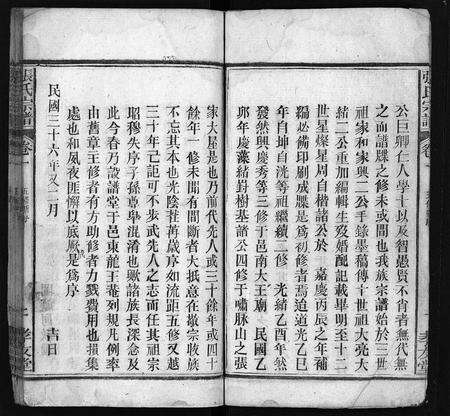 公巨卿在人學十以及智愚賢不肖者無代無
之而譜牒之修未或間也我族宗譜始於三世
祖家和家興二公手錄墨稿傳十世祖大亮大
緒二公重加編輯生歿婚配記載畢明至十二
世星燦星周自楷諸公於 嘉慶丙辰之年補
闕訛修付印刷成牒是爲初修者焉迨道光乙巳
年自坤自洸等祖繼續二修 光緒乙酉年然
發然興慶秀等三修于邑南大王廟 民國乙
卯年慶藻緒對樹基諸公四修于嘯脉山之張
家大屋是也乃前代先人或三十餘年或四十
餘年一修未聞有間斷者大抵意在敬宗收族
不忘其本也光陰荏苒歲序如流距五修又越
三十年己詎可不步武先人之志而任其祖宗
昭穆失序子孫尊卑混淆也厥諸族長深念及
此今春乃設譜堂于邑東龍王菴列規凡例率
由舊章主修者有方助修者力戮費用也損集
處也和夙夜匪懈以底厥是爲序
民國三十六年又二月 吉日
張氏宗譜
卷一
孝友堂